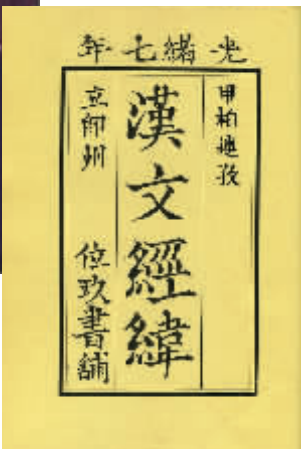 光緒七年
甲柏連孜
漢文經緯
位玖書舖